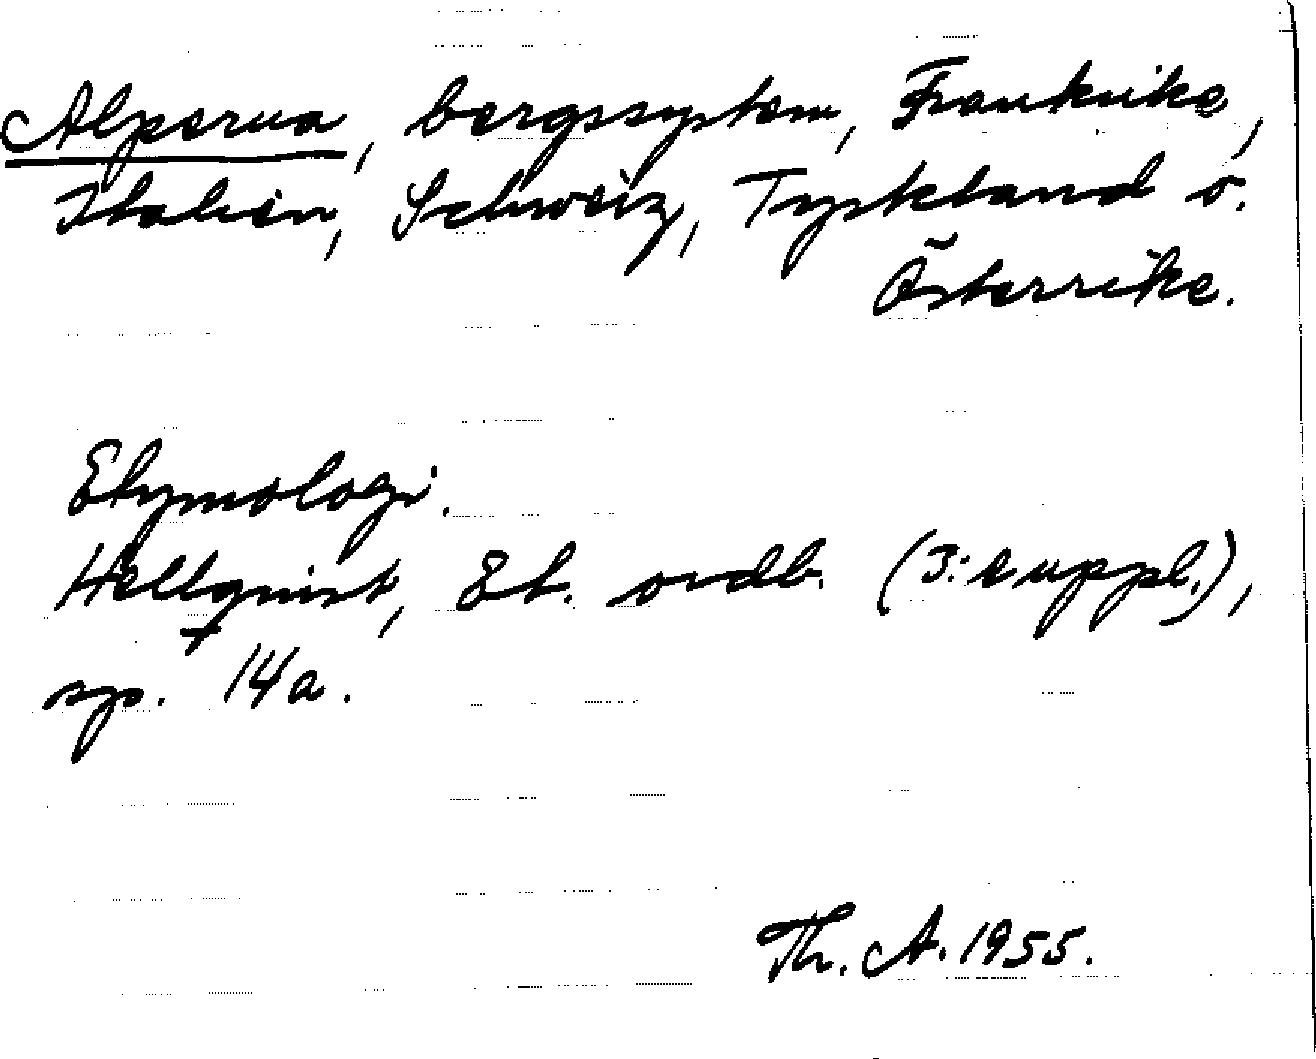 Alperna, bergssystem, Frankrike,
Italien, Schweiz, Tyskland o.
Österrike.
Etymologi.
Hellquist, Et. ordb. (3: e uppl.),
sp. 14a.
Th. A. 1955.